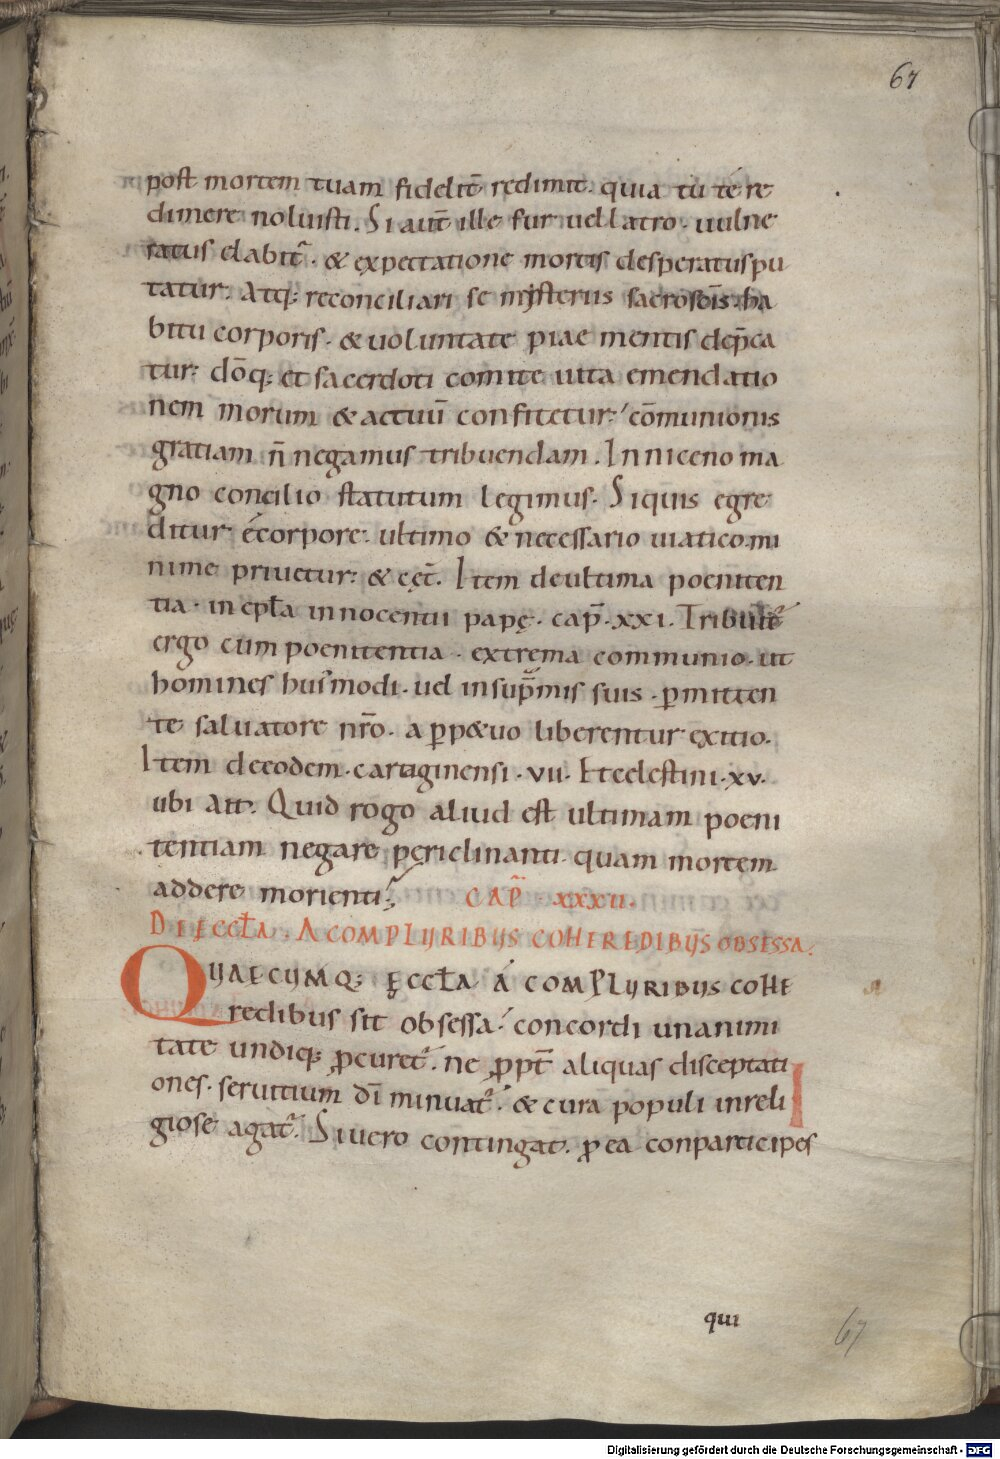 67
post mortem tuam fidelit̄ redimit. quia tu te re
dimere noluisti. Si aut̄ ille fur uel latro. uulne
ratus elabit̄. & expectatione mortis desperatus pu
tatur. Atq; reconciliari se mysteriis sacrosc̄is. ha
bitu corporis. & uoluntate piae mentis dep̄ca
tur. dōq; et sacerdoti comite uita emendatio
nem morum & actuū confitetur. cōmunionis
gratiam n̄ negamus tribuendam. In niceno ma
gno concilio statutum legimus. Siquis egre
ditur e corpore. ultimo & necessario uiatico mi
nime priuetur. & cęt̄. Item de ultima poeniten
tia. in epła innocentii papę. cap̄. xxi. Tribuit̄
ergo cum poenitentia. extrema communio. ut
homines hui'modi. uel in sup̄mis suis. ꝑmitten
te saluatore nr̄o. a ꝑp&uo liberentur exitio.
Item de eodem. cartaginensi. vii. Et celestini. xv.
ubi Ait. Quid rogo aliud est ultimam poeni
tentiam negare ꝑiclinanti. quam mortem
addere morienti;
CAP̄. xxxii.
DE ĘCCŁA. A COMPLURIBUS COHEREDIBUS OBSESSA.
QUAECUMQ; ĘCCŁA A COMPLURIBUS COHE
redibus sit obsessa. concordi unanimi
tate undiq; ꝓcuret̄. ne ꝓpt̄ aliquas disceptati
ones. seruitium dī minuat̄. & cura populi inreli
giose agat̄. Si uero contingat. ꝓ ea conparticipes
qui
67
Digitalisierung gefördert durch die Deutsche Forschungsgemeinschaft - DFG